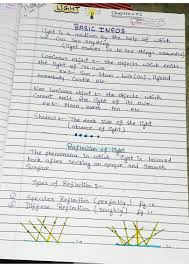 LIGHT
Chapter
BASIC INFOS
Light is a medium by the help of which
we can see anything.
(Light enables us to see things around us)
Luminous object :- the objects which emits
the light of its own.
ex:- Sun, Stars, bulb (on), lighted
candle etc
Non luminous object :- the objects which
cannot emit the light of its own.
ex:- Moon, etc
Shadow :- The dark side of the light
(absence of light)
Reflection of light
The phenomena in which light is bounced
back after striking an opaque and smooth
Surface
Types of Reflection :-
① Specular Reflection (perfectly) fig
② Diffuse Reflection (roughly) fig